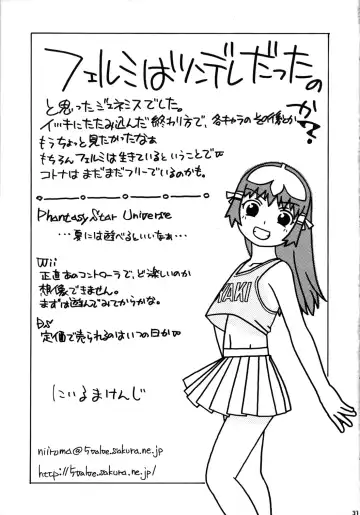 フェルミはツンデレだったのか?
と思ったジェネシスでした。
イッキにたたみ込んだ終わり方で、各キャラのその後とか
もうちょっと見たかったなぁ
もちろんフェルミは生きているということで
コトナはまだまだフリーでいるのかも。
Phantasy Star Universe
……夏には遊べるといいなぁ…
Wii
正直あのコントローラで、ど楽しいのか
想像できません。
まずは遊んでみてからかな。
DS
定価で売られるのはいつの日か
にいるまけんじ
niiroma@5value.sakura.ne.jp
http://5value.sakura.ne.jp/
KAKI
31